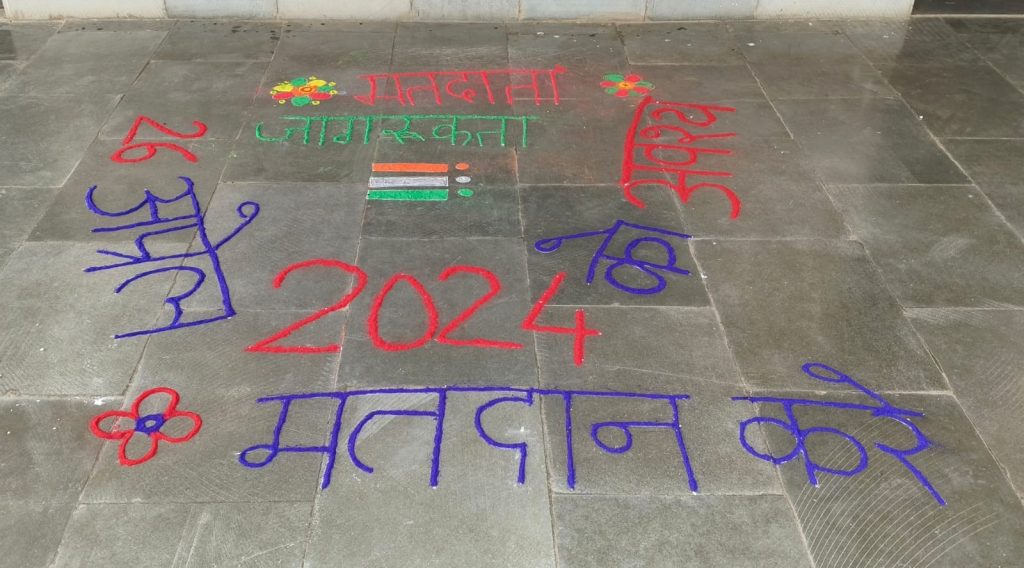 मतदाता
जागरूकता
26 अप्रैल
2024
को अवश्य
मतदान करे